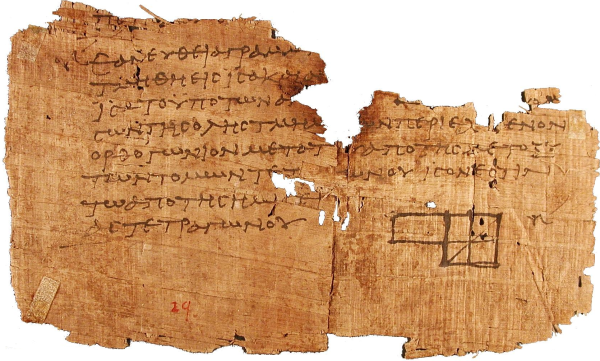 ΕΑΝΕΥΘΕΙΑΓΡΑΜ
ΤΜΗΘΗΕΙϹΙϹΑΚΑΙ
ΙϹΑΤΟΥΠΟΤΩΝΑ
ϹΩΝΤΗϹΟΛΗϹΤΜΗ ΝΠΕΡΙΕΧ ΜΕΝΟΝ
ΟΡΘΟΓΩΝΙΟΝΜΕΤΟΤ ΑΠΟΤΗϹΜΕΤΟΞΥ
ΤΩΝΤΟΜΩΝΤΕ ΩΝΟΥΙϹΟΝΕϹΤΙΝ
ΤΩΑΠΟΤΗϹΗΜΙ
ΑϹΤΕΤΡΑΓΩΝΟΥ
29.